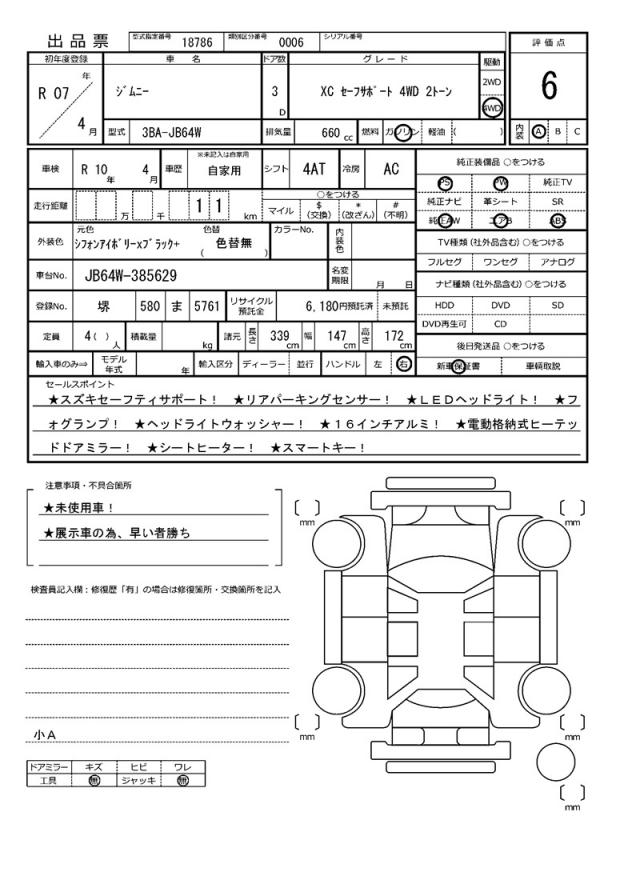 出品票
型式指定番号 18786 類別区分番号 0006 シリアル番号
評価点
6
内装 A B C
初年度登録 車名 ドア数 グレード 駆動
R 07 年 4 月
ジムニー 3 D XC セーフサポート 4WD 2トーン 2WD 4WD
型式 3BA-JB64W 排気量 660 cc 燃料 ガソリン 軽油 ( )
車検 R 10 年 4 月 車歴 ※未記入は自家用 自家用 シフト 4AT 冷房 AC
走行距離 万 千 1 1 km
○をつける
マイル $ (交換) * (改ざん) # (不明)
外装色 元色 シフォンアイボリーxブラック+ 色替 ( 色替無 ) カラーNo. 内装色
車台No. JB64W-385629 名変期限 月 日
登録No. 堺 580 ま 5761 リサイクル預託金 6,180円預託済 未預託
定員 4( ) 人 積載量 kg 諸元 長さ 339 cm 幅 147 cm 高さ 172 cm
輸入車のみ⇒ モデル年式 年 輸入区分 ディーラー 並行 ハンドル 左 右
純正装備品 ○をつける
PS PW 純正TV
純正ナビ 革シート SR
純正AW エアB ABS
TV種類 (社外品含む) ○をつける
フルセグ ワンセグ アナログ
ナビ種類 (社外品含む) ○をつける
HDD DVD SD
DVD再生可 CD
後日発送品 ○をつける
新車保証書 車輌取説
セールスポイント
★スズキセーフティサポート! ★リアパーキングセンサー! ★LEDヘッドライト! ★フ
ォグランプ! ★ヘッドライトウォッシャー! ★16インチアルミ! ★電動格納式ヒーテッ
ドドアミラー! ★シートヒーター! ★スマートキー!
注意事項・不具合箇所
★未使用車!
★展示車の為、早い者勝ち
検査員記入欄：修復歴「有」の場合は修復箇所・交換箇所を記入
小A
ドアミラー キズ ヒビ ワレ
工具 無 ジャッキ 無
mm
mm
mm
mm
mm